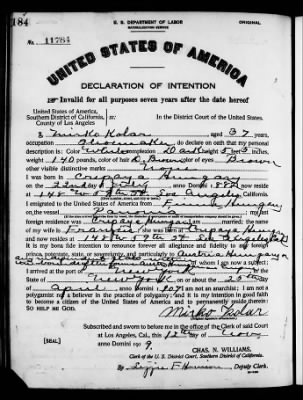 184
U. S. DEPARTMENT OF LABOR
NATURALIZATION SERVICE
ORIGINAL
No. 11784
UNITED STATES OF AMERICA
DECLARATION OF INTENTION
Invalid for all purposes seven years after the date hereof
United States of America,
Southern District of California,
County of Los Angeles
In the District Court of the United States.
I, Mirko Kolar aged 37 years,
occupation Shoemaker, do declare on oath that my personal
description is: Color White, complexion Dark, height 5 feet inches,
weight 140 pounds, color of hair D. Brown, color of eyes Brown
other visible distinctive marks None
I was born in Crepaja Hungary
on the 22nd day of July, anno Domini 1882, now reside
at Los Angeles, California.
I emigrated to the United States of America from
the vessel my last
foreign residence was Crepaja Hungary; I am married; the name
of my wife is Frances; she was born at Crepaja Hungary
and now resides at
It is my bona fide intention to renounce forever all allegiance and fidelity to any foreign
prince, potentate, state, or sovereignty, and particularly to Austria Hungary
I arrived at the port of New York, in the
State of New York, on or about the 20th day
of April, anno Domini 1907; I am not an anarchist; I am not a
polygamist nor a believer in the practice of polygamy; and it is my intention in good faith
to become a citizen of the United States of America and to permanently reside therein:
SO HELP ME GOD.
Mirko Kolar
Subscribed and sworn to before me in the office of the Clerk of said Court
at Los Angeles, Cal., this 12th day of Nov
[SEAL] anno Domini 1919.
CHAS. N. WILLIAMS,
Clerk of the U. S. District Court, Southern District of California.
By Deputy Clerk.